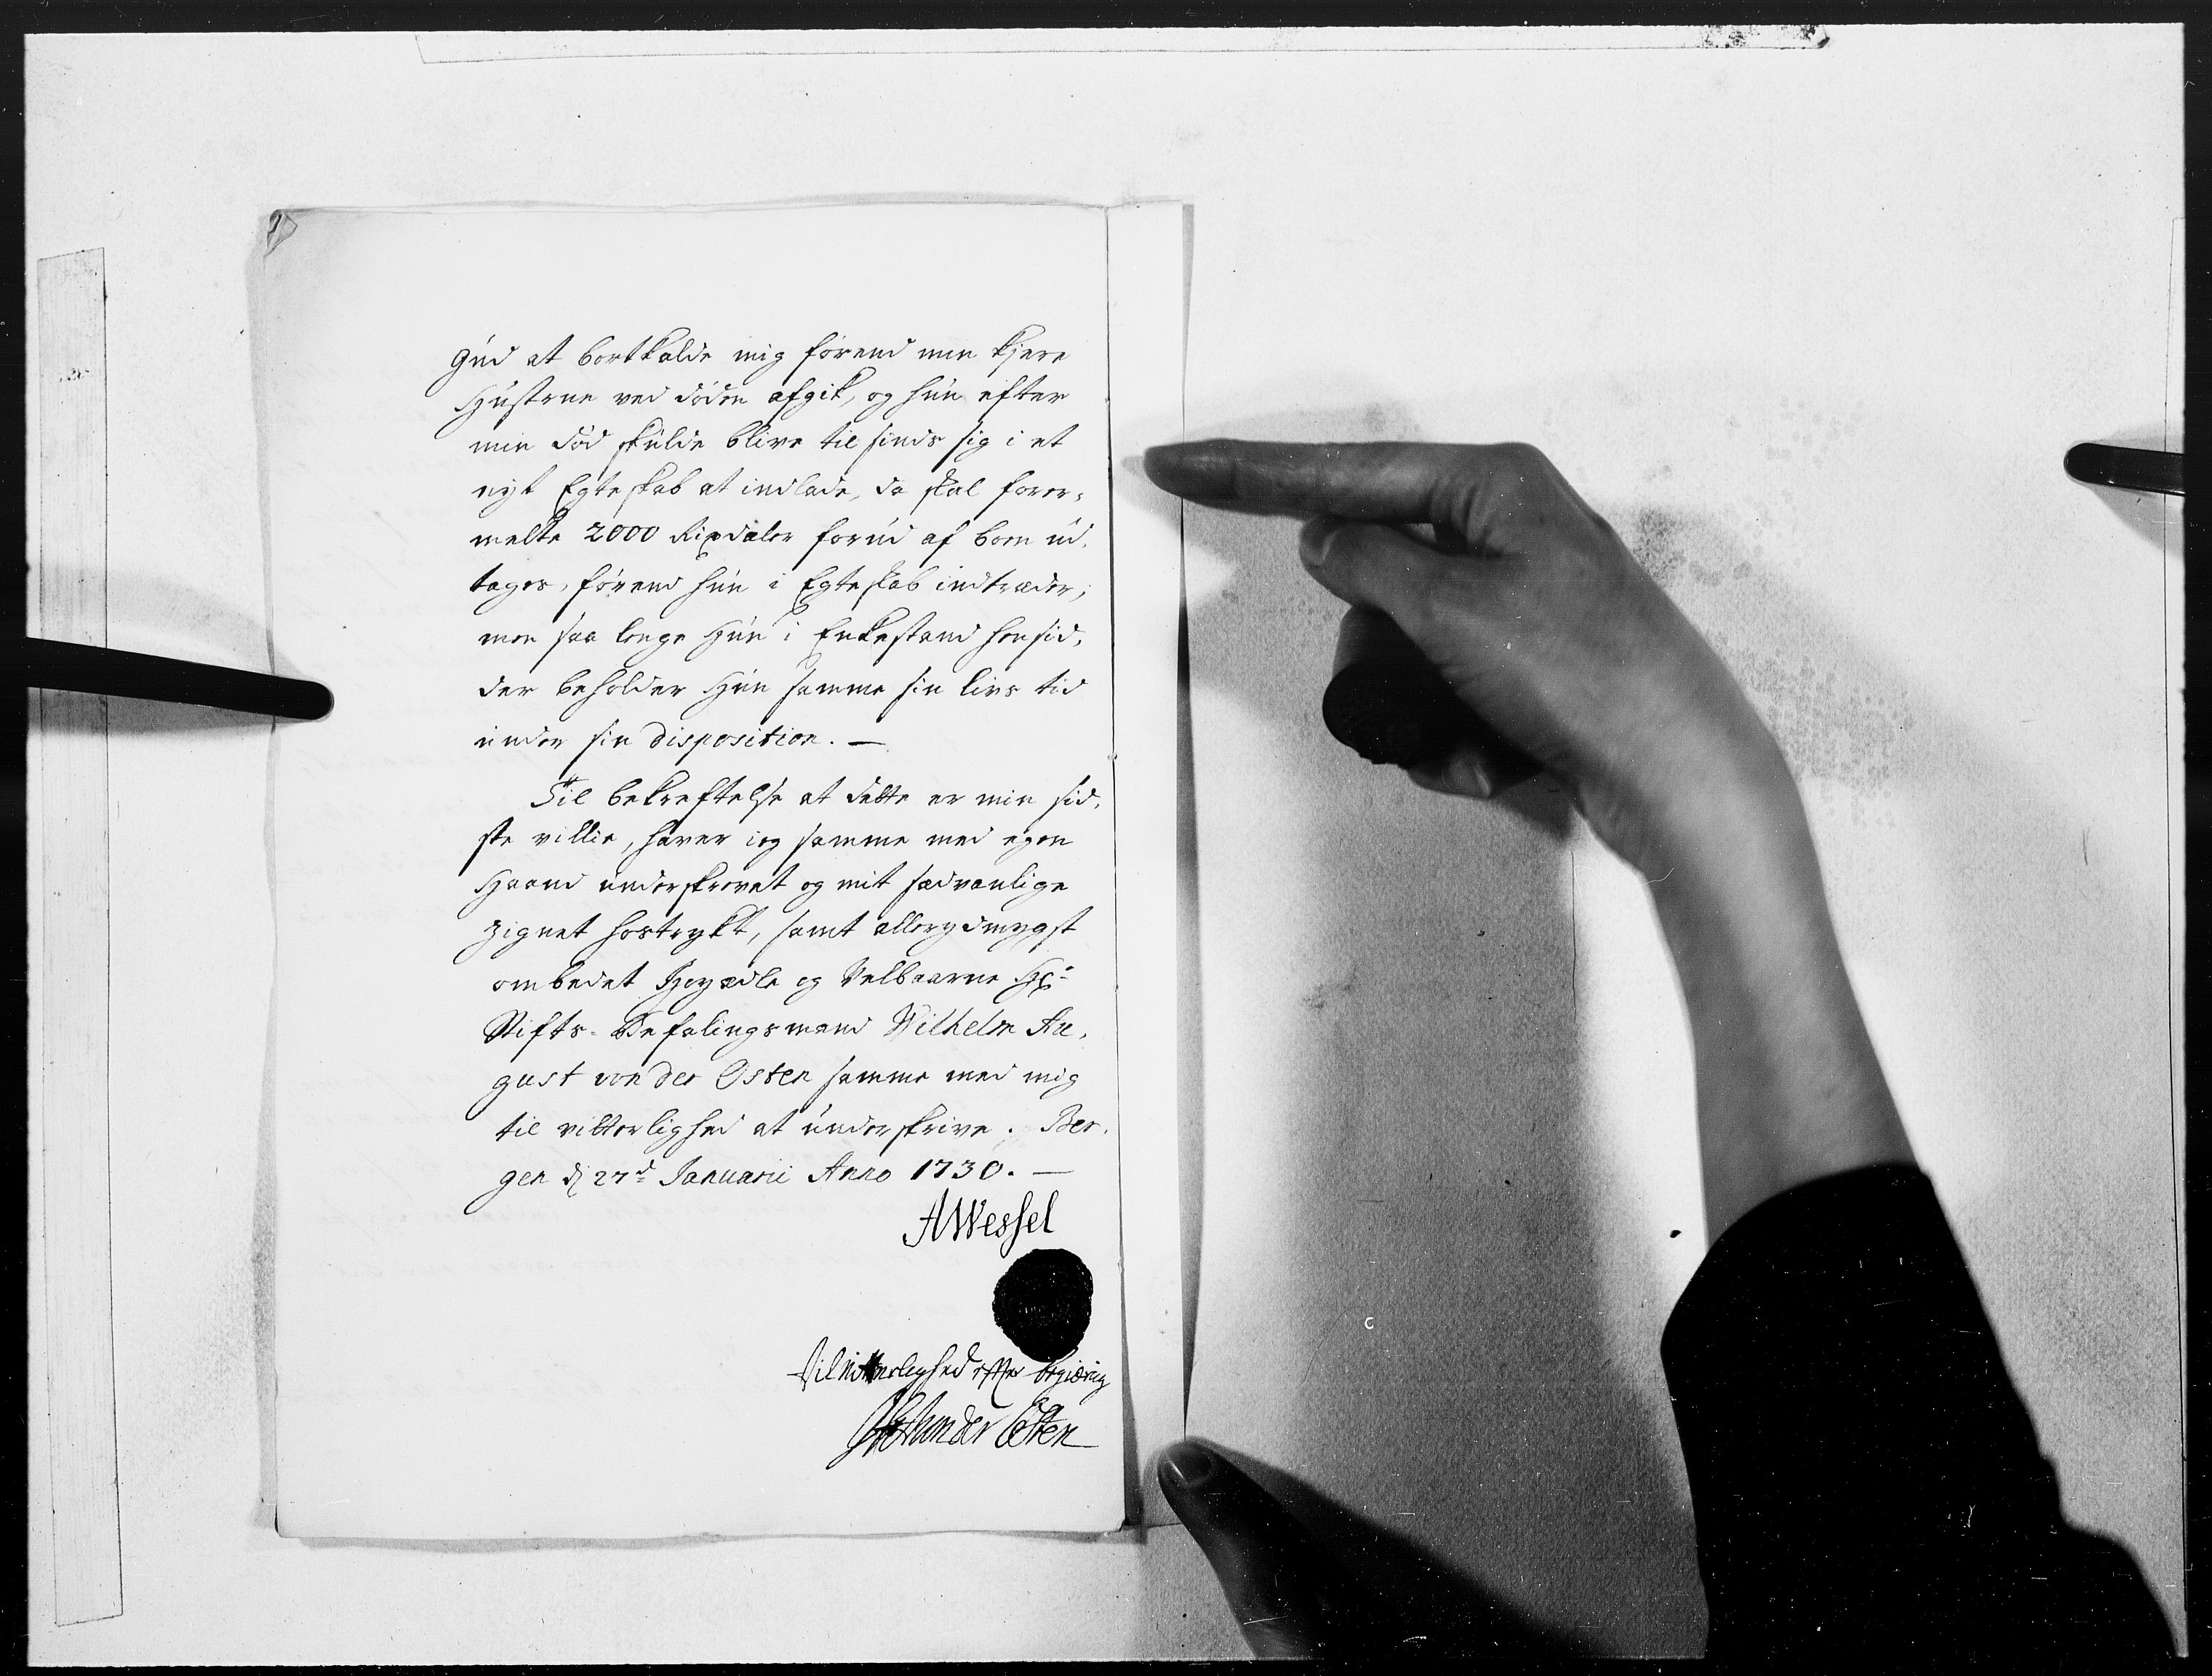 Gud at bortkalde mig førend min kjere
Hustrue ved døden afgik, og hun efter
min død skulde blive til sinds sig i et
nyt Egteskab at indlade, da skal forer-
melte 2000 Rixdaler forud af boen ud-
tages, førend hun i Egteskab indtræder;
men saa lenge Hun i Enkestand hensid-
der beholder Hun samme sin livs tid
under sin disposition. —
Til bekreftelse at dette er min sid-
ste villie, haver ieg samme med egen
Haand underskrevet og mit sædvanlige
Zignet hostrykt, samt allerydmygst
ombedet Høyædle og Velbaarne Hr:
Stifts-Befalingsmand Wilhelm Au-
gust von der Osten samme med mig
til vitterlighed at underskrive. Ber-
gen d 27d Januarii Anno 1730. —
AWessel
Til Vitterlighed efter begiæring
von der Osten